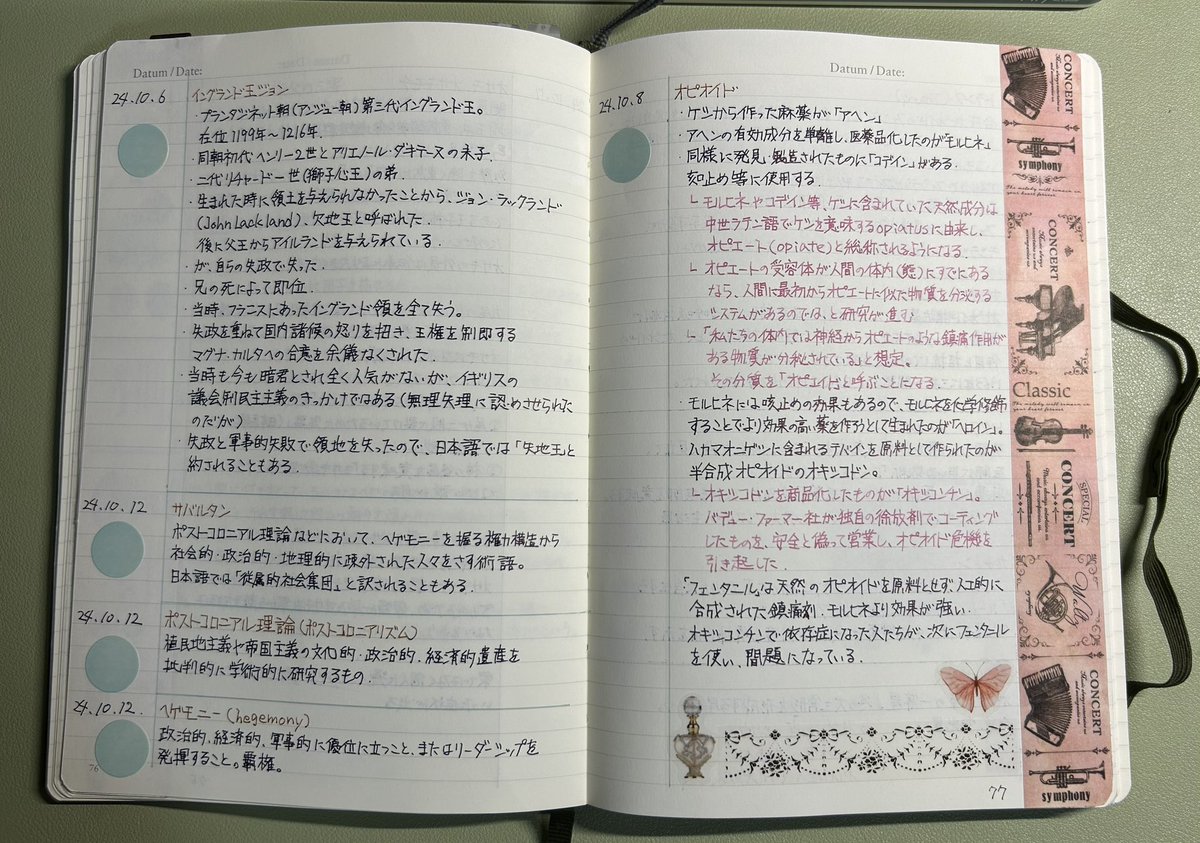 Datum / Date:
24.10.6
イングランド王ジョン
・プランタジネット朝(アンジュー朝)第三代イングランド王。
在位1199年〜1216年.
・同朝初代ヘンリー2世とアリエノール・ダキテーヌの末子.
・二代リチャード一世(獅子心王)の弟.
・生まれた時に領土を与えられなかったことから、ジョン・ラックランド
(John Lackland)、欠地王と呼ばれた.
後に父王からアイルランドを与えられている.
・が、自らの失政で失った.
・兄の死によって即位.
・当時、フランスにあったイングランド領を全て失う。
・失政を重ねて国内諸侯の怒りを招き、王権を制限する
マグナ・カルタへの合意を余儀なくされた.
・当時も今も暗君とされ全く人気がないが、イギリスの
議会制民主主義のきっかけではある(無理矢理に認めさせられた
のだが)
・失政と軍事的失敗で領地を失ったので、日本語では「失地王」と
約されることもある.
24.10.12
サバルタン
ポストコロニアル理論などにおいて、ヘゲモニーを握る権力構造から
社会的・政治的・地理的に疎外された人々をさす術語。
日本語では「従属的社会集団」と訳されることもある.
24.10.12
ポストコロニアル理論(ポストコロニアリズム)
植民地主義や帝国主義の文化的・政治的、経済的遺産を
批判的に学術的に研究するもの.
24.10.12.
ヘゲモニー(hegemony)
政治的、経済的、軍事的に優位に立つこと、またはリーダーシップを
発揮すること。覇権。
76
Datum / Date:
24.10.8
オピオイド
・ケシから作った麻薬が「アヘン」
・アヘンの有効成分を単離し、医薬品化したのが「モルヒネ」
・同様に発見・製造されたものに「コデイン」がある.
咳止め等に使用する.
└ モルヒネやコデイン等、ケシに含まれていた天然成分は
中世ラテン語でケシを意味するopiatusに由来し、
オピエート(opiate)と総称されるようになる.
└ オピエートの受容体が人間の体内(髄)にすでにある
なら、人間に最初からオピエートに似た物質を分泌する
システムがあるのでは、と研究が進む
└「私たちの体内では神経からオピエートのような鎮痛作用が
ある物質が分泌されている」と想定。
その分質を「オピオイド」と呼ぶことになる.
・モルヒネには咳止めの効果もあるので、モルヒネを化学修飾
することでより効果の高い薬を作ろうとして生まれたのが「ヘロイン」。
・ハカマオニゲシに含まれるテバインを原料として作られたのが
半合成オピオイドのオキシコドン。
└ オキシコドンを商品化したものが「オキシコンチン」。
パデュー・ファーマー社が独自の徐放剤でコーティング
したものを、安全と偽って営業し、オピオイド危機を
引き起した.
「フェンタニル」は天然のオピオイドを原料とせず、人工的に
合成された鎮痛剤.モルヒネより効果が強い.
オキシコンチンで依存症になった人たちが、次にフェンタニル
を使い、問題になっている.
77
CONCERT
symphony
CONCERT
Classic
SPECIAL
CONCERT
Waltz
CONCERT
symphony